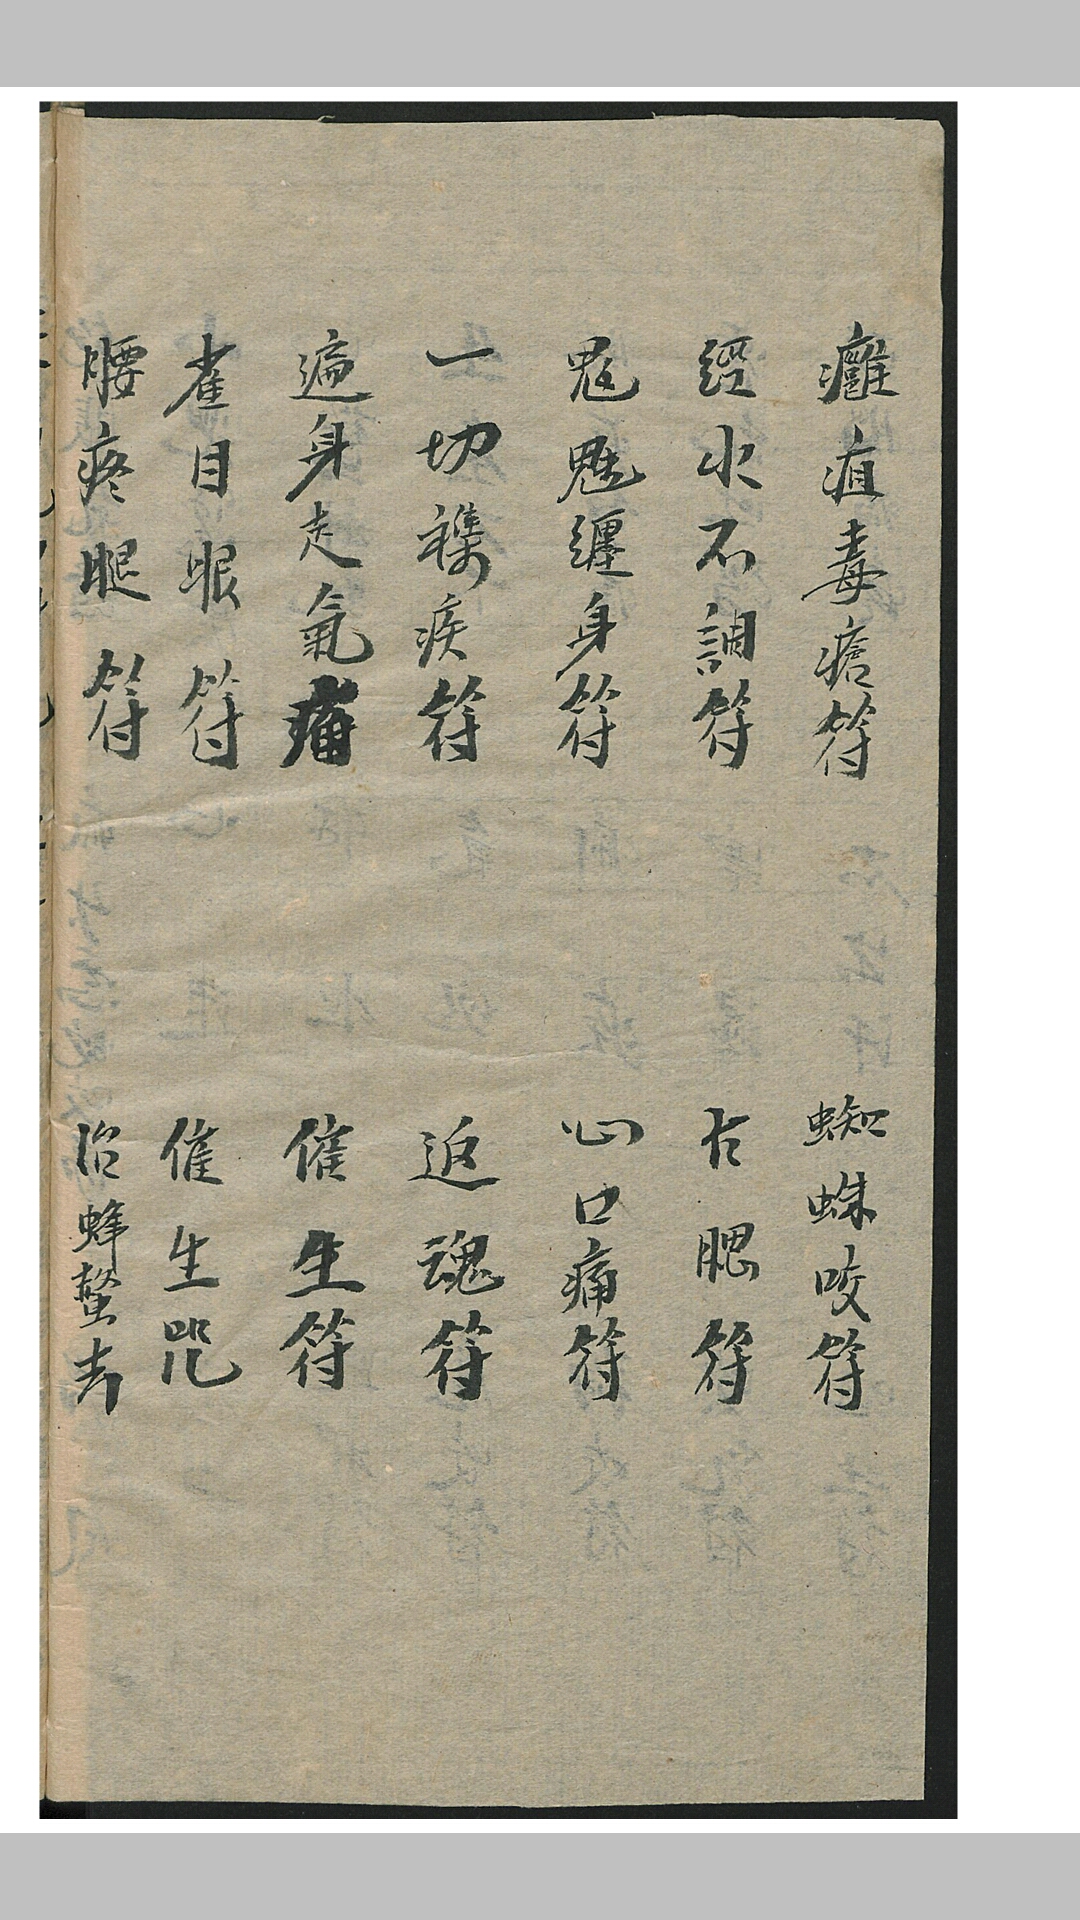 癰疽毒瘡符
經水不調符
鬽魋纏身符
一切襍疾符
遍身走氣痛
雀目眼符
腰疼腿符
蜘蛛咬符
乍腮符
心口痛符
返魂符
催生符
催生咒
治蜂螫者